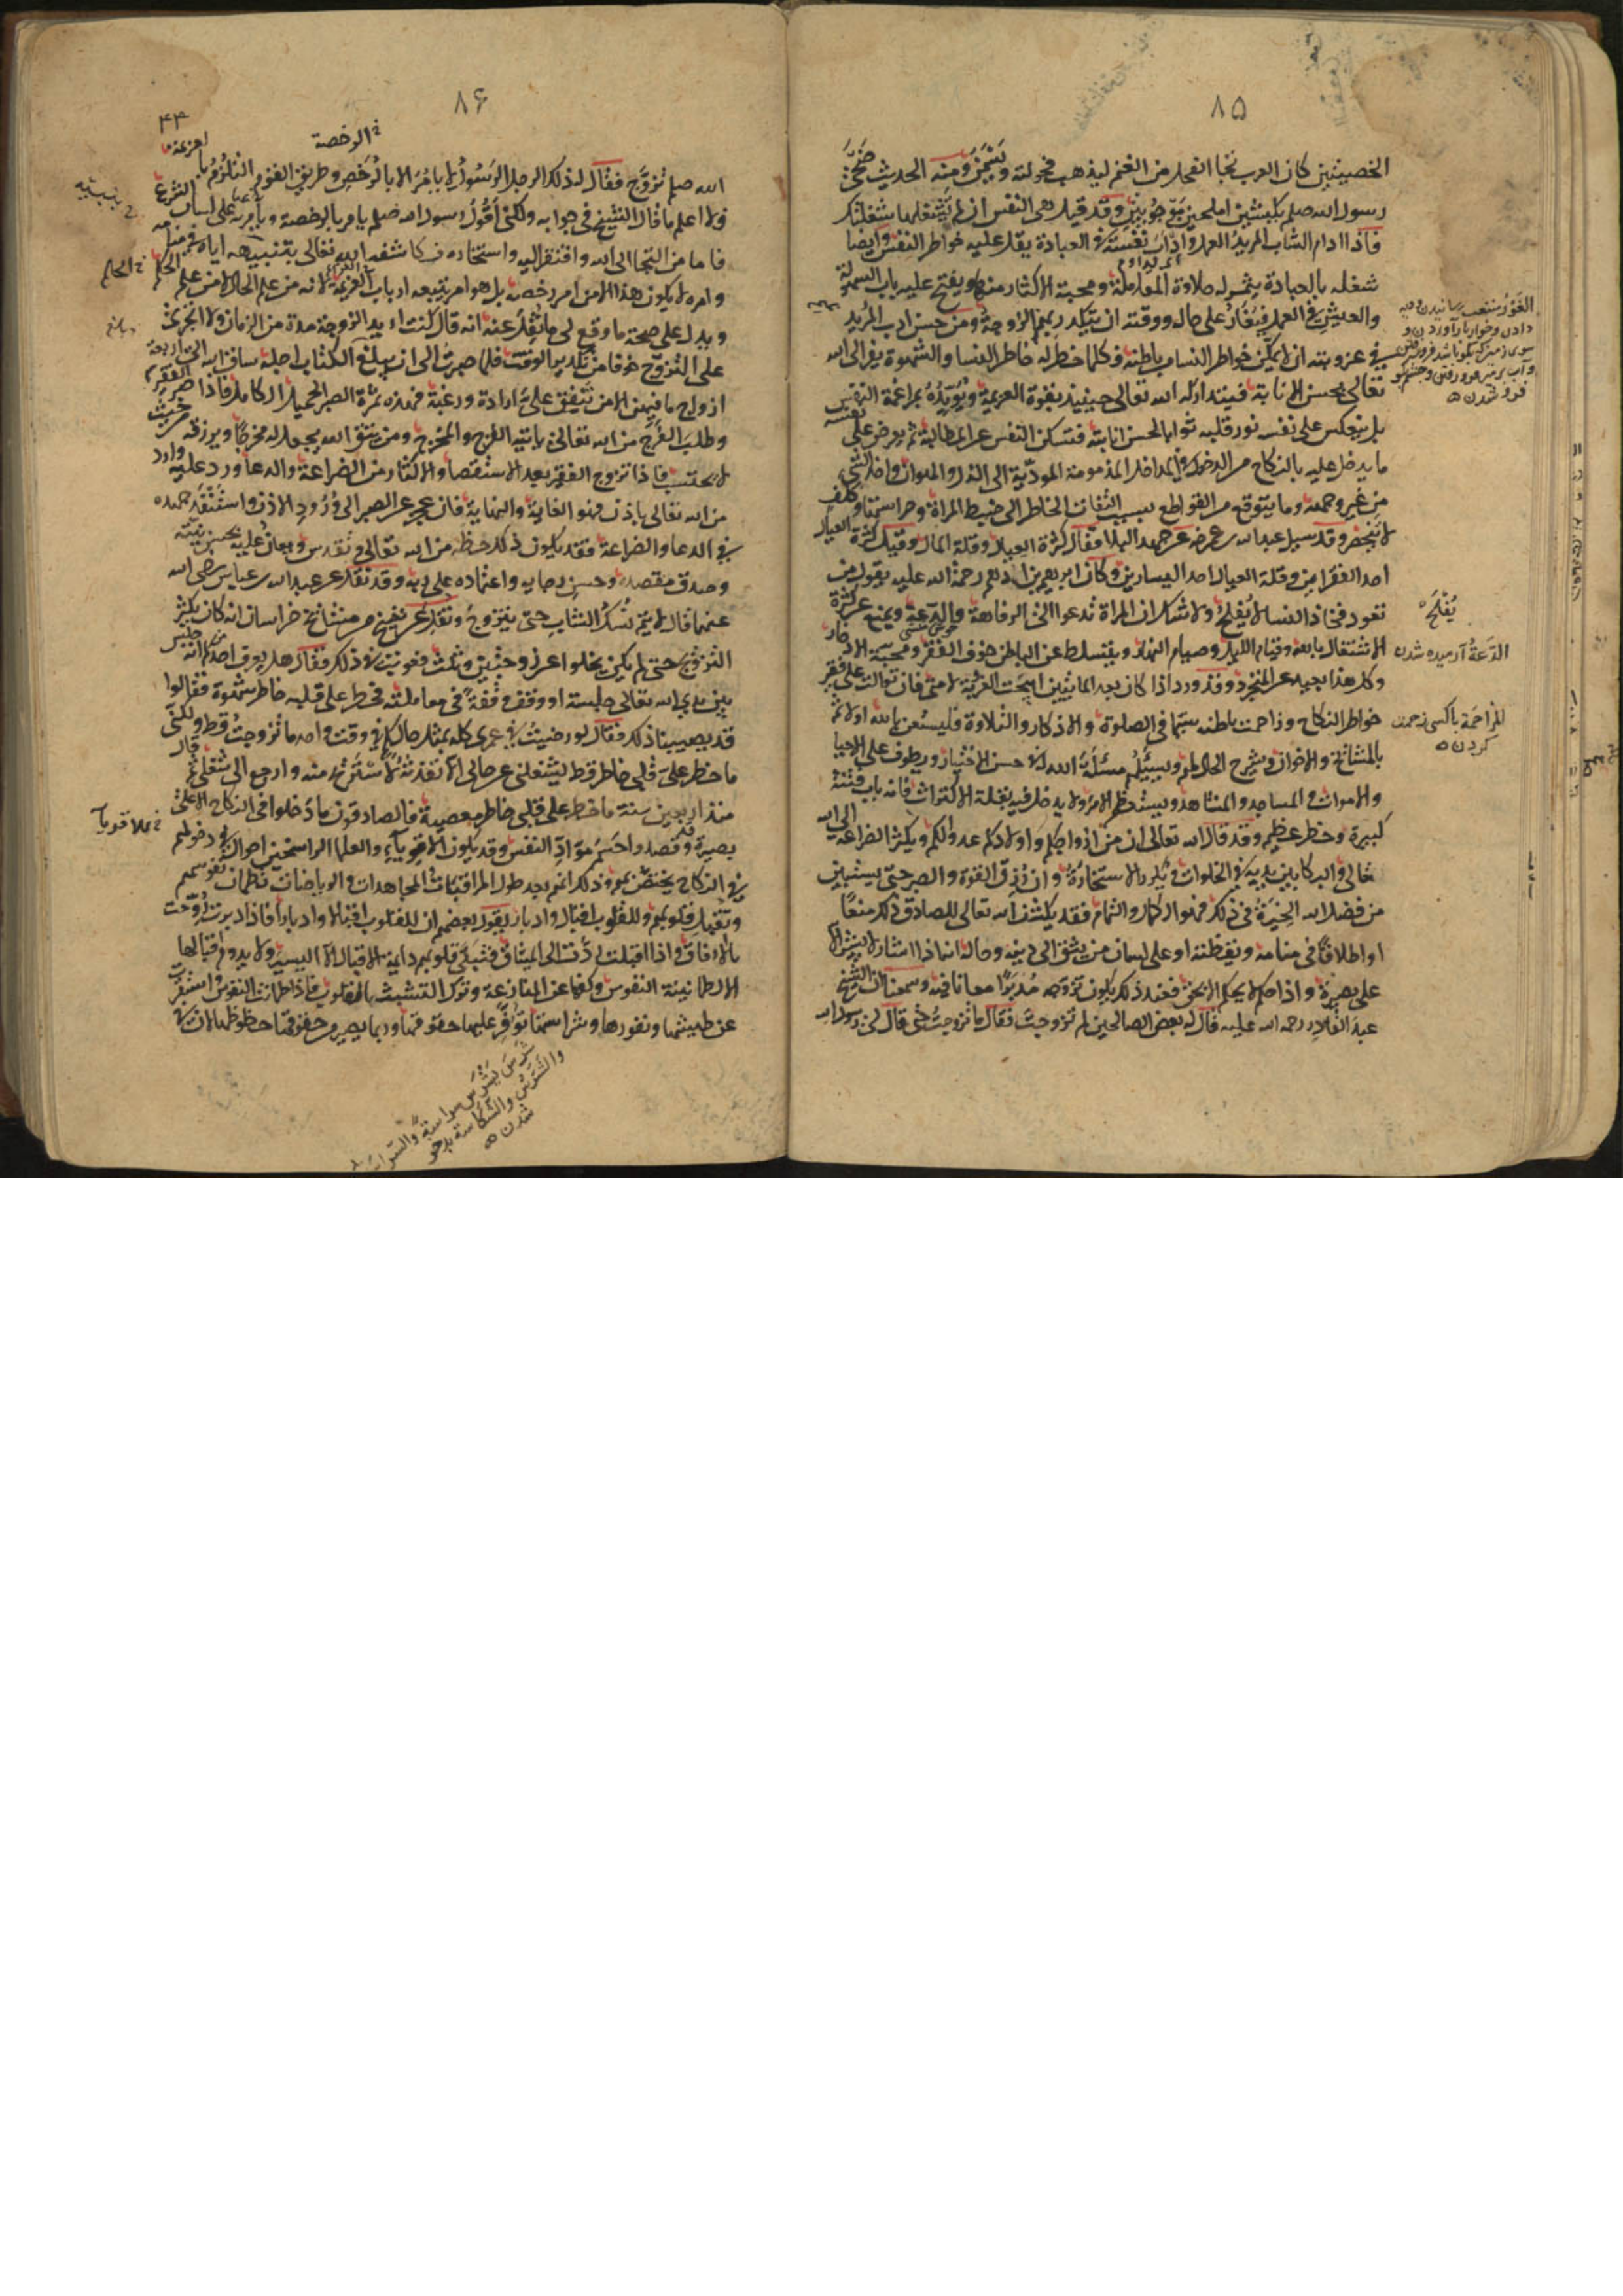 ٨۵
الخصيتين كان العرب تجا الفحل من الغنم ليذهب فحولته ويسمن ومنه الحديث ضحى
رسول الله صلم بكبشين املحين موجوبين وقد قيل هى النفس ان لم تشغلها شغلتك
فاذا ادام الشاب المريد العمل واذاب نفسه فى العبادة يقل عليه خواطر النفس وايضا
شغله بالعبادة يثمر له حلاوة المعاملة ومحبة الاكثار منه ويفتح عليه باب السهولة
والعيش فى العمل فيغار على حاله ووقته ان يتكدر بهم الزوجة ومن حسن ادب المريد
فى عزوبته ان لا يمكن خواطر النسا من باطنه وكلما خطر له خاطر النسا والشهوة يفر الى الله
تعالى بحسن الانابة فيتداركه الله تعالى حينئذ بقوة العزيمة ويؤيده بمراغمة النفس
بل ينعكس على نفسه نور قلبه ثوابا لحسن انابته فتسكن النفس عن المطالبة ثم يعرض على نفسه
ما يدخل عليه بالنكاح من الدخول فى المداخل المذمومة المودية الى الذل والهوان واخذ الشى
من غير وجهه وما يتوقع من القواطع بسبب التفات الخاطر الى ضبط المراة وحراستها وكلف
لا تنحصر وقد سيل عبدالله بن عمر عن جهد البلا فقال كثرة العيال وقلة المال وقيل كثرة العيال
احد الفقرين وقلة العيال احد اليسارين وكان ابرهيم بن ادهم رحمة الله عليه يقول من
تعود فخاذ النسا لا يفلح ولا شك ان المراة تدعوا الى الرفاهة والدعة وتمنع عن كثرة
الاشتغال بالله وقيام الليل وصيام النهار ويتسلط على الباطن خوف الفقر ومحبة الادخار
وكل هذا بعيد عن المتجرد وقد ورد اذا كان بعد المائتين ابيحت العزبة لامتى فان توالت على الفقير
خواطر النكاح وزاحمت باطنه سيما فى الصلوة والاذكار والتلاوة فليستعن بالله اولا ثم
بالمشائخ والاخوان ويشرح الحال لهم ويسئلهم مسئلة الله له فى حسن الاختيار ويطوف على الاحيا
والاموات والمساجد والمشاهد ويستعظم الامر ولا يدخل فيه بقلة الاكتراث فانه باب فتنة
كبيرة وخطر عظيم وقد قال الله تعالى ان من ازواجكم واولادكم عدوا لكم ويكثر الضراعة الى الله
تعالى والبكا بين يديه فى الخلوات ويكرر الاستخارة وان رزق القوة والصبر حتى يستبين
من فضل الله الخيرة فى ذلك فهو الكمال والتمام فقد يكشف الله تعالى للصادق ذلك منعا
او اطلاقا فى منامه ويقظته او على لسان من يثق الى دينه وحاله انه اذا اشار لا يشير الا
على بصيرة واذا حكم لا يحكم الا بحق فعند ذلك يكون تزوجه مدبرا معانا فيه وسمعنا ان الشيخ
عبد القادر رحمه الله عليه قال له بعض الصالحين لم تزوجت فقال ما تزوجت حتى قال لى رسول الله
يفلح
الدعة آرميده شدن
المزاحمة باكسى زحمت
كردن
٨۶
۴۳
الرخصة
الله صلم تزوج فقال له ذلك الرجل الرسول يامر الا بالرخص وطريق القوم التلزم بالعزيمة
فلا اعلم ما قال الشيخ فى جوابه ولكنى اقول رسول الله صلم يامر بالرخصة وامره على لسان الشرع
فاما من التجا الى الله وافتقر اليه واستخاره فكاشفه الله تعالى بتنبيهه اياه فى منامه
وامره لا يكون هذا الامر امر رخصة بل هو امر يتبعه ارباب العزيمة لانه من علم الحال لا من علم الحكم
ويدل على صحة ما وقع لى ما نقل عنه انه قال كنت اريد الزوجة مدة من الزمان ولا اجترئ
على التزوج خوفا من تكدير الوقت فلما صبرت الى ان بلغ الكتاب اجله ساق الله الى اربعة
ازواج ما فيهن الا من تنفق على ارادة ورغبة فهذه ثمرة الصبر الجميل الكامل فاذا صبر الفقير
وطلب الفرج من الله تعالى ياتيه الفرج والمخرج ومن يتق الله يجعل له مخرجا ويرزقه من حيث
لا يحتسب فاذا تزوج الفقير بعد الاستقصا والاكثار من الضراعة والدعا وورد عليه وارد
من الله تعالى باذن فهو الغاية والنهاية فان عجز عن الصبر الى ورود الاذن واستنفد جهده
فى الدعا والضراعة فقد يكون ذلك حظه من الله تعالى وتقدس ويعان عليه بحسن نيته
وصدق مقصده وحسن رجايه واعتماده على ربه وقد نقل عن عبدالله بن عباس رضى الله
عنهما قال لا يتم نسك الشاب حتى يتزوج ونقل عن شيخ من مشائخ خراسان انه كان يكثر
التزوج حتى لم يكن يخلوا عن زوجتين وثلث فعوتب فى ذلك فقال هل يعرف احد منكم انه جلس
بين يدى الله تعالى جلسة او وقف وقفة فى معاملته فخطر على قلبه خاطر شهوة فقالوا
قد يصيبنا ذلك فقال لو رضيت فى عمرى كله بمثل حالكم فى وقت واحد ما تزوجت قط ولكنى
ما خطر على قلبى خاطر قط يشغلنى عن حالى الا نفذته لاستريح منه وارجع الى شغلى ثم قال
منذ اربعين سنة ما خطر على قلبى خاطر معصية فالصادقون ما دخلوا فى النكاح الا على
بصيرة وقصدوا حسم مواد النفس وقد يكون للاقوياء والعلما الراسخين احوال فى دخولهم
فى النكاح يختص بهم وذلك انهم بعد طول المراقبات والمجاهدات والرياضات تطمئن نفوسهم
وتقبل قلوبهم وللقلوب اقبال وادبار يقول بعضهم ان للقلوب اقبالا وادبارا فاذا ادبرت روحت
بالارفاق واذا اقبلت ردت الى الميثاق فتبقى قلوبهم دايمة الاقبال الا اليسير ولا يدوم اقبالها
الا لطمانينة النفوس وكفها عن المنازعة وترك التشبث بالقلوب فاذا اطمانت النفوس واستقرت
عن طيشها ونفورها وشراستها توفر عليها حقوقها وربما يصير من حقوقها حظوظها لان فى